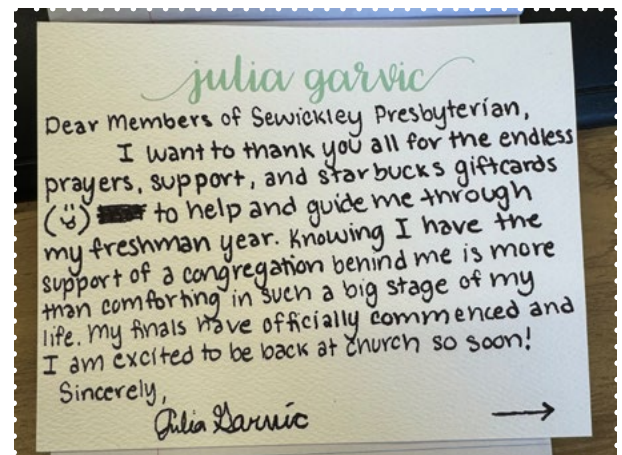 julia garvic
Dear Members of Sewickley Presbyterian,
I want to thank you all for the endless
prayers, support, and starbucks giftcards
(☺) to help and guide me through
my freshman year. Knowing I have the
support of a congregation behind me is more
than comforting in such a big stage of my
life. My finals have officially commenced and
I am excited to be back at church so soon!
Sincerely,
Julia Garvic